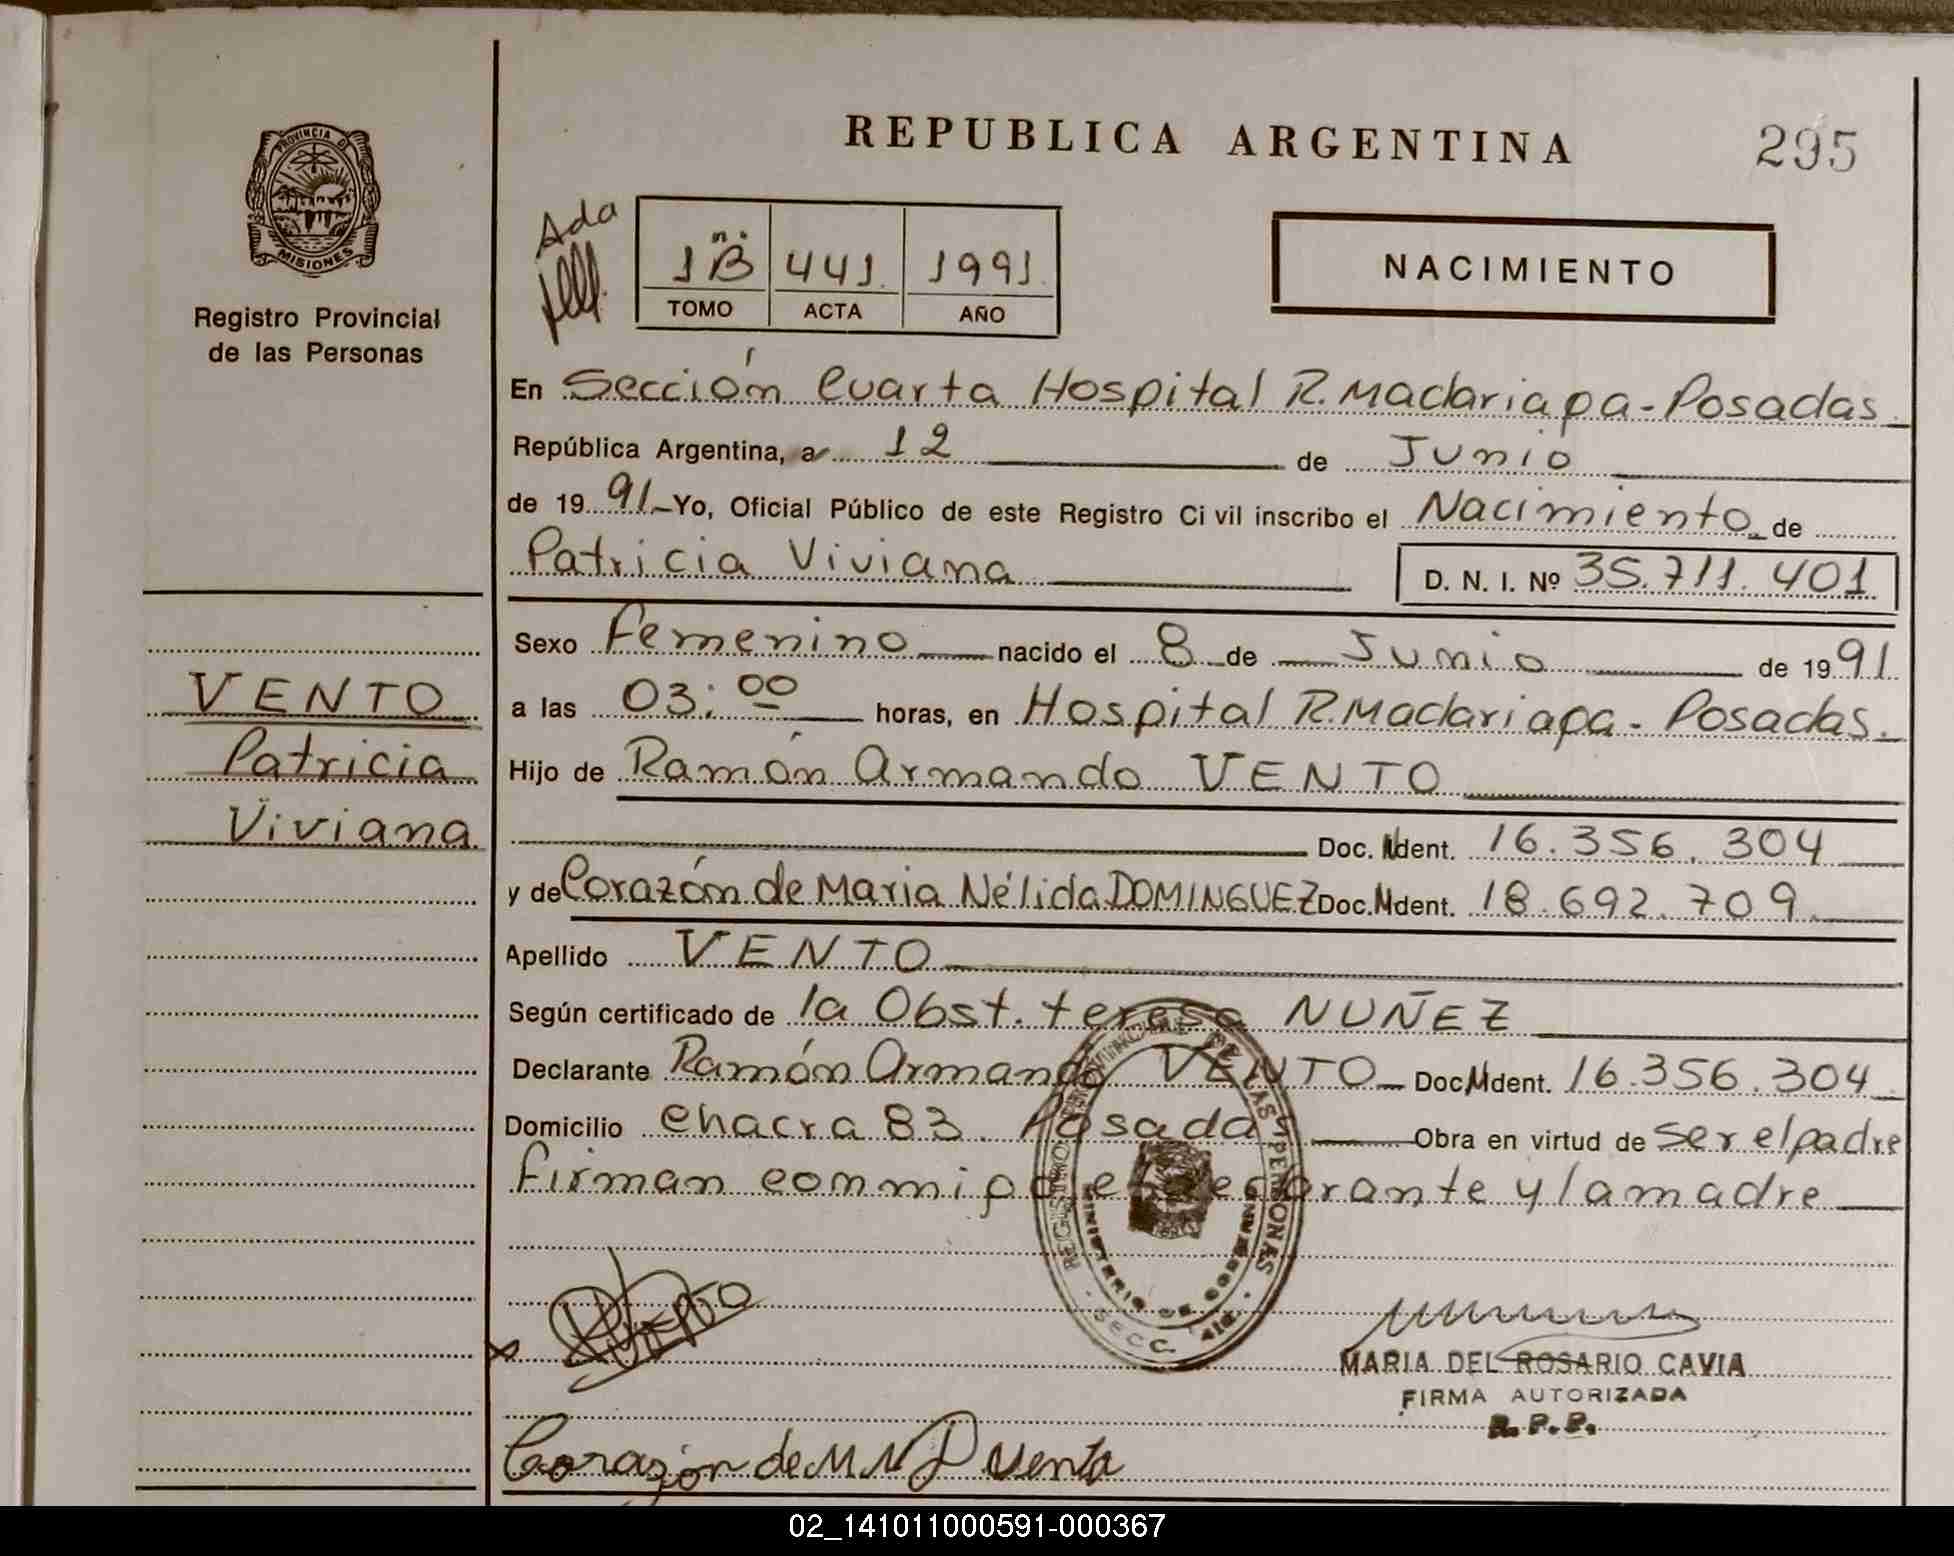 REPUBLICA ARGENTINA
295
PROVINCIA D
MISIONES
Registro Provincial
de las Personas
Ada
1B 441 1991
TOMO ACTA AÑO
NACIMIENTO
En Sección Cuarta Hospital R. Madariaga - Posadas
República Argentina, a 12 de Junio
de 1991 Yo, Oficial Público de este Registro Ci vil inscribo el Nacimiento de
Patricia Viviana D. N. I. Nº 35.711.401
Sexo Femenino nacido el 8 de Junio de 1991
a las 03:00 horas, en Hospital R. Madariaga - Posadas.
Hijo de Ramón Armando VENTO
Doc. Ident. 16.356.304
y de Corazón de Maria Nélida DOMINGUEZ Doc. Ident. 18.692.709
Apellido VENTO
Según certificado de la Obst. teresa NUÑEZ
Declarante Ramón Armando VENTO Doc. Ident. 16.356.304
Domicilio chacra 83. Posadas Obra en virtud de ser el padre
firman conmigo el declarante y la madre
VENTO
Patricia
Viviana
REGISTRO PROVINCIAL DE LAS PERSONAS
MINISTERIO DE GOBIERNO
SECC. 4ta.
MARIA DEL ROSARIO CAVIA
FIRMA AUTORIZADA
R. P. P.
Corazón de M N D Vento
02_141011000591-000367